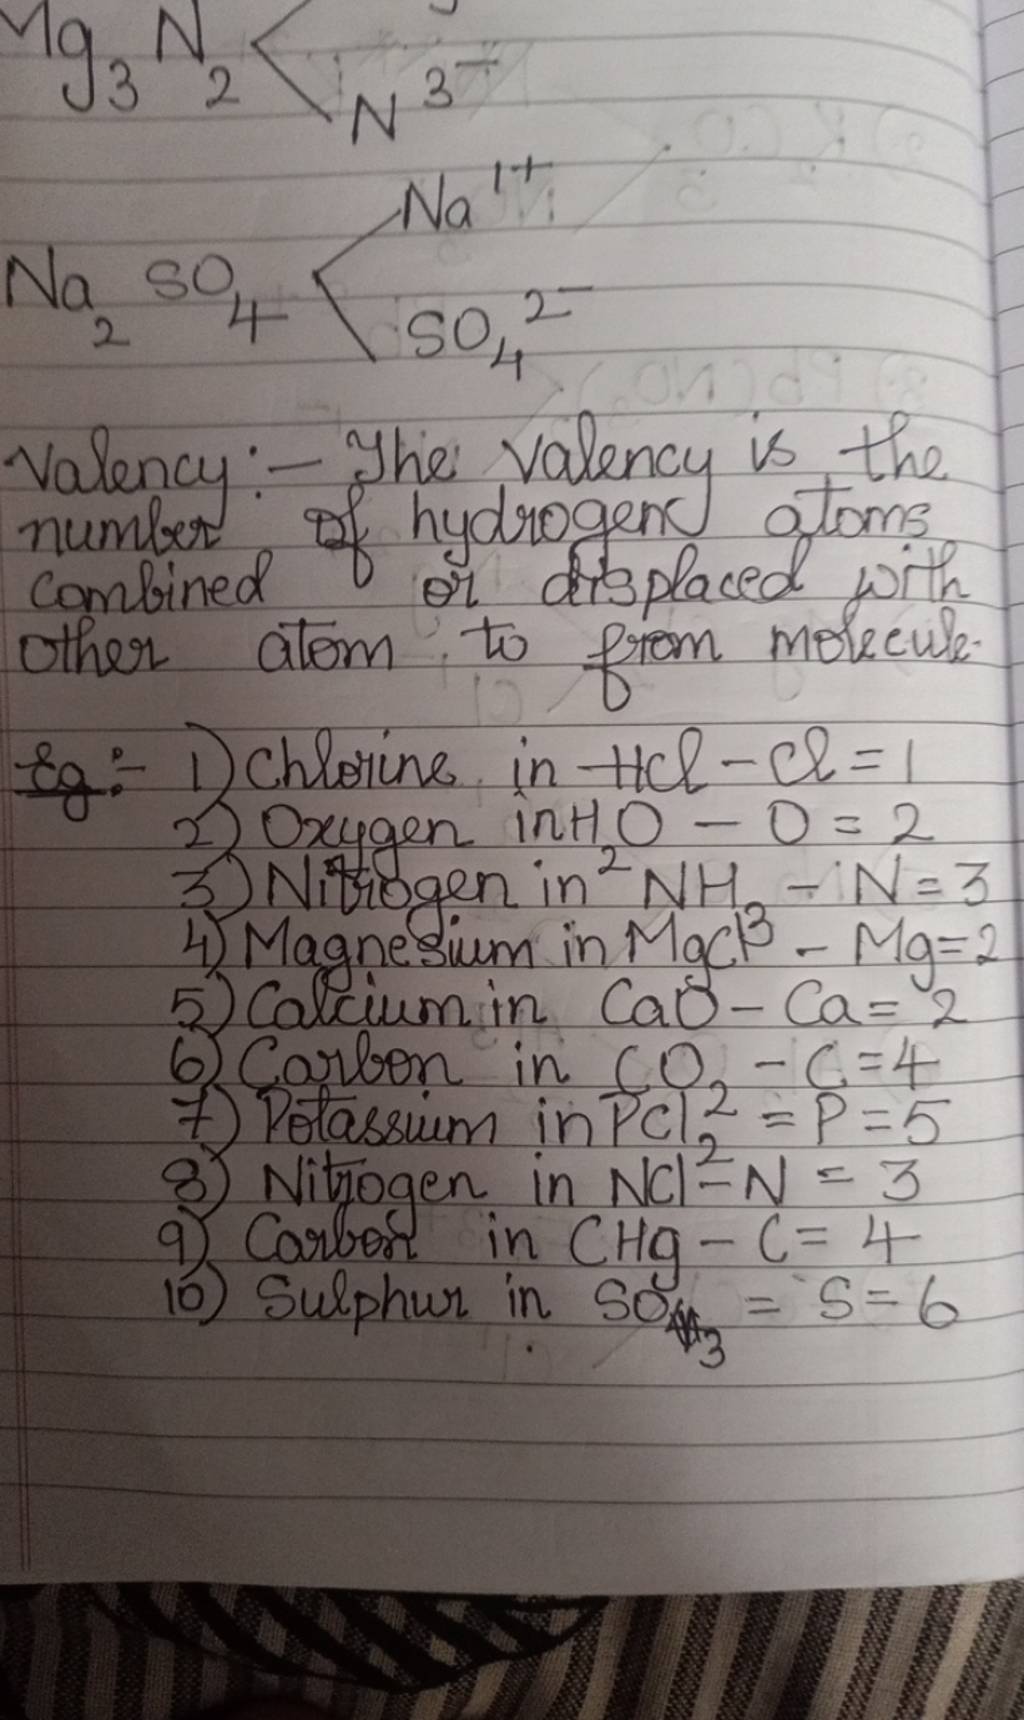 Mg₃N₂ N³⁻
Na¹⁺
Na₂SO₄
SO₄²⁻
Valency :- The valency is the
number of hydrogen atoms
combined or displaced with
other atom to from molecule.
Eg :- 1) Chlorine in HCl - Cl = 1
2) Oxygen in H₂O - O = 2
3) Nitrogen in NH₃ - N = 3
4) Magnesium in MgCl₂ - Mg = 2
5) Calcium in CaO - Ca = 2
6) Carbon in CO₂ - C = 4
7) Potassium in PCl₂ = P = 5
8) Nitrogen in NCl₂ - N = 3
9) Carbon in CHg - C = 4
10) Sulphur in SO₃ = S = 6